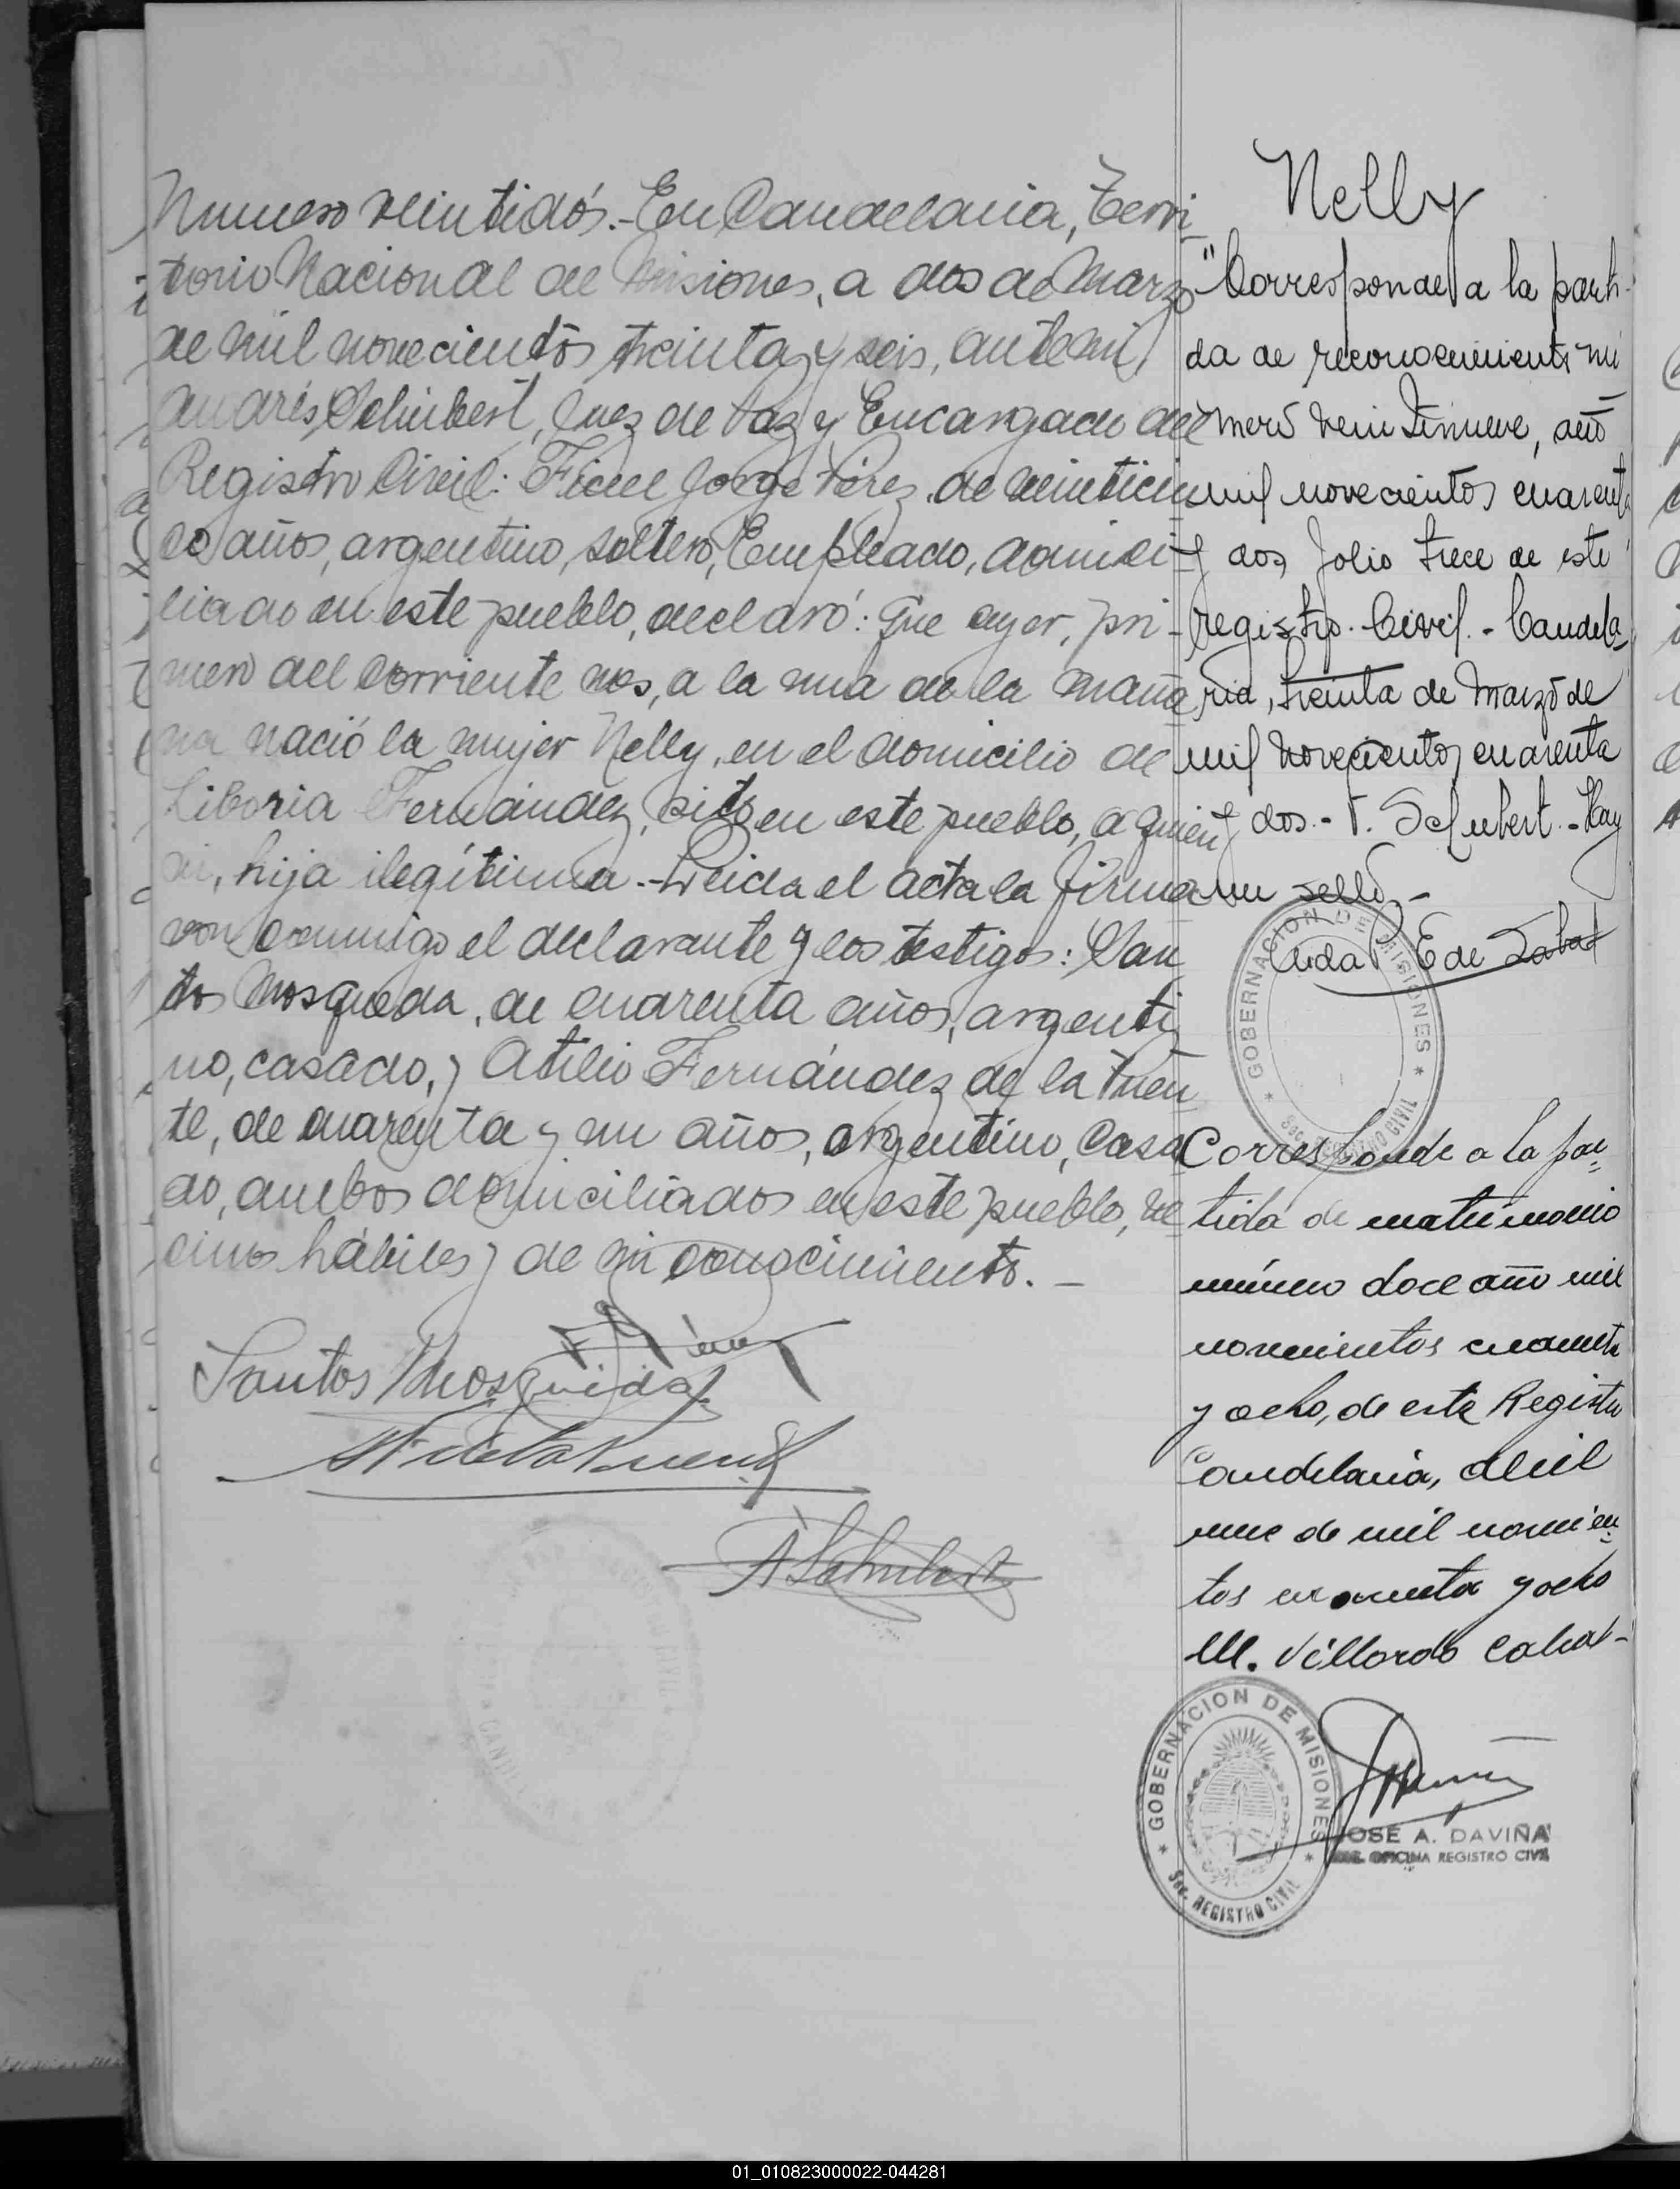 Numero veintidós.- En Candelaria, Terri
torio Nacional de Misiones, a dos de Marzo
de mil novecientos treinta y seis, ante mí,
Andrés Schubert, Juez de Paz y Encargado del
Registro Civil: Fidel Jorge Pérez, de veinticin
co años, argentino, soltero, Empleado, domici-
liado en este pueblo, declaró: Que ayer, pri-
mero del corriente mes, a la una de la maña
na nació la mujer Nelly, en el domicilio de
Liboria Fernández, sito en este pueblo, a quien
hija ilegítima.- Leida el acta la firma
ron conmigo el declarante y los testigos: San
tos Mosqueda, de cuarenta años, argenti
no, casado, y Atilio Fernández de la Fuen
te, de cuarenta y un años, argentino, casa
do, ambos domiciliados en este pueblo, ve
cinos hábiles y de mi conocimiento.-
Santos Mosqueda
A F de la Fuente
A Schubert
Nelly
"Corresponde a la parti-
da de reconocimiento nú
mero veintinueve, año
mil novecientos cuarenta
y dos folio trece de este
registro Civil.- Candela
ria, treinta de Marzo de
mil novecientos cuarenta
y dos.- Schubert.- Hay
un sello.-
E de Sabat
GOBERNACION DE MISIONES
Sec. REGISTRO CIVIL
Corresponde a la par
tida de matrimonio
número doce año mil
novecientos cuarenta
y ocho, de este Registro
Candelaria, abril
de mil novecien
tos cuarenta y ocho
M. Villordo Cabal-
GOBERNACION DE MISIONES
Sec. REGISTRO CIVIL
JOSE A. DAVIÑA
OFICINA REGISTRO CIVIL
01_010823000022-044281